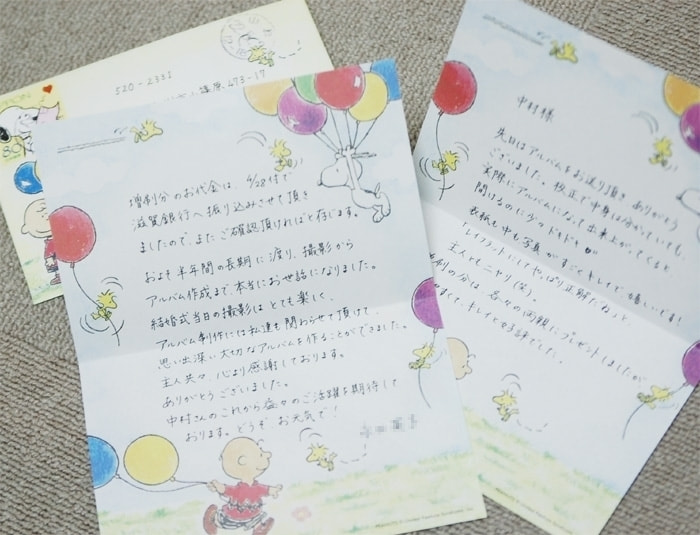 520-2331
篠原 473-17
中村様
先日はアルバムをお送り頂き ありがとう
ございました。校正で中身は分かっていても、
実際にアルバムになって出来上がってくると
開けるのに少々ドキドキ
表紙も中も写真がすごくキレイで嬉しいです!
レイフラットにしてやっぱり正解だねっと、
主人ともニヤリ(笑)
制の分は 各々の両親にプレゼントしましたが
まで、キレイと好評でした。
増制分のお代金は、6/28付で
滋賀銀行へ振り込みさせて頂き
ましたので、またご確認頂ければと存じます。
およそ半年間の長期に渡り、撮影から
アルバム作成まで、本当にお世話になりました。
結婚式当日の撮影は とても楽しく、
アルバム制作には私達も関わらせて頂けて、
思い出深い大切なアルバムを作ることができました。
主人共々、心より感謝しております。
ありがとうございました。
中村さんのこれから益々のご活躍を期待して
おります。どうぞ お元気で!